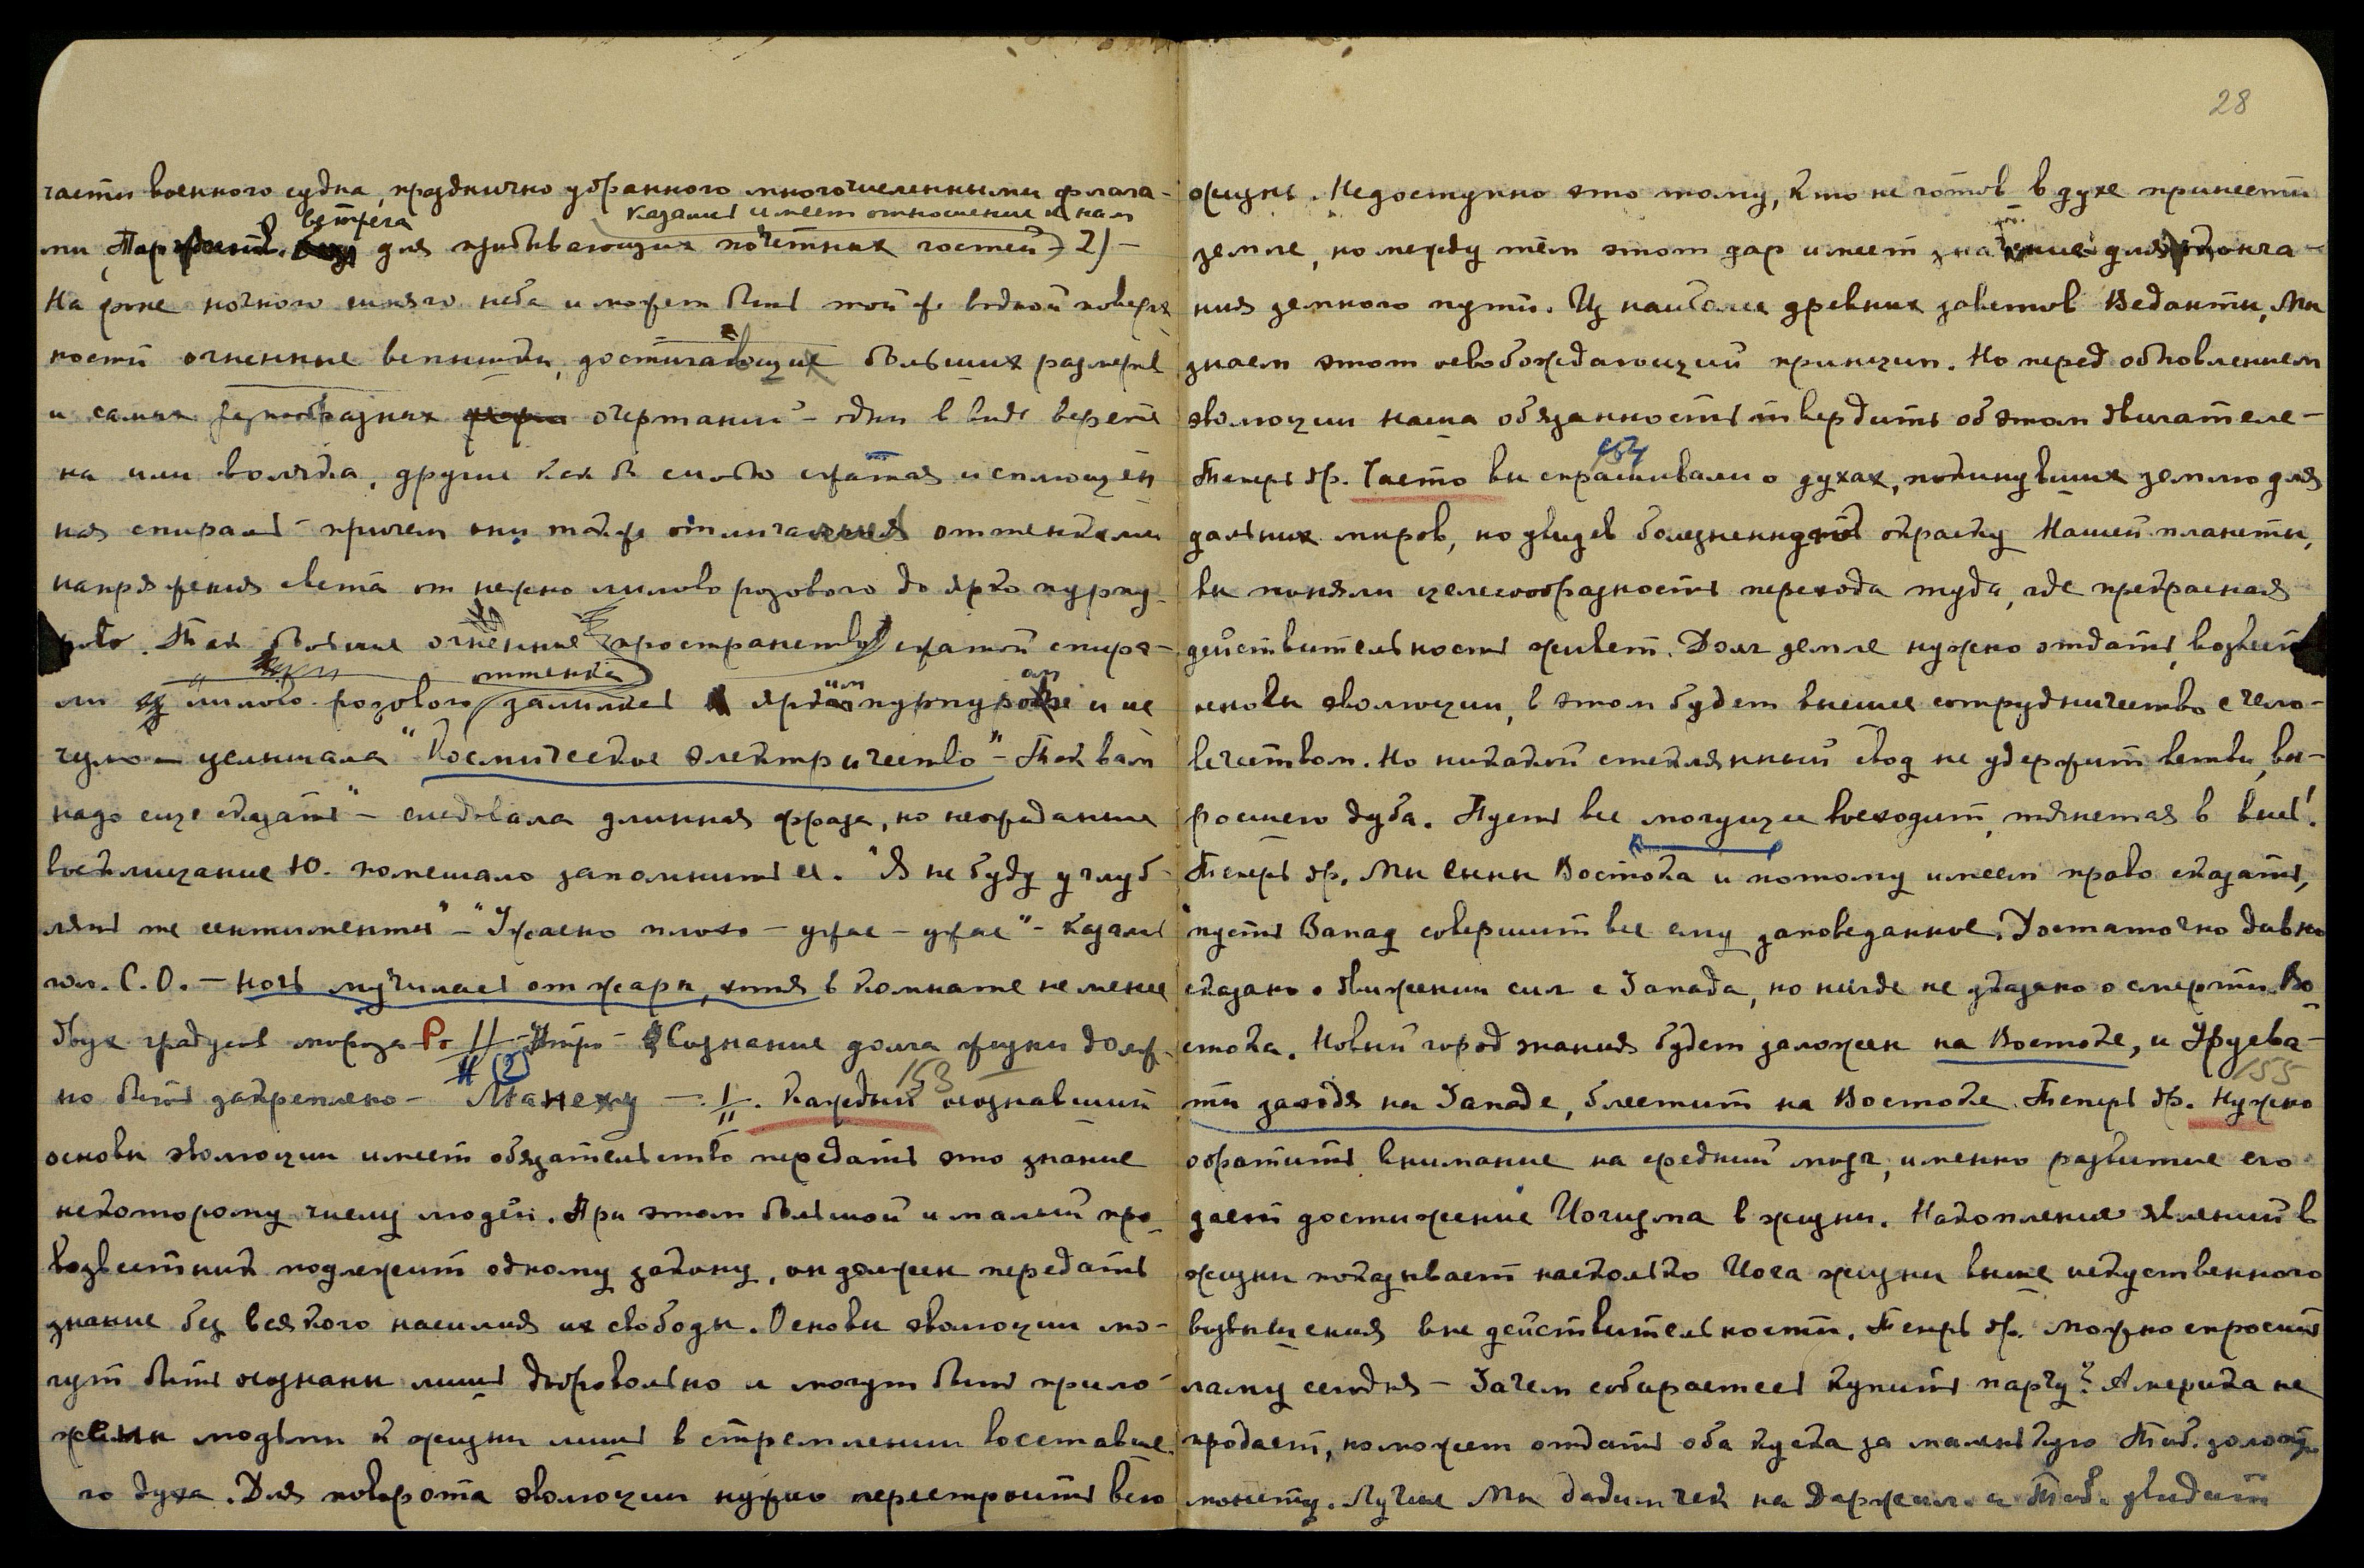 28
части военного судна, празднично убранного многочисленными флага-
встреча казалось имеет отношение к нам
ми, для прибывающих почётных гостей → 2) —
На фоне ночного синяго неба и может быть той ж. водной поверх
ности огненные вспышки, достигающие больших размеров
и самых разнообразных очертаний – одни в виде верете
на или волчка, другие как бы сильно сжатая и сплющен
ная спираль – причем они также отличались оттенками
напряжения света от нежно лилово розового до ярко пурпу-
Так большие огненные пространства сжатой спира-
оттенка
ли из лилово розового залились ярким пурпуром и не
услышала "Космическое электричество" – Так вам
надо еще сказать" – следовала длинная фраза, но неожиданное
восклицание Ю. помешало запомнить её. "Я не буду углуб-
лять те сентименты" – "Ужасно плохо – ужас – ужас" – казалось
гол. С.О. – Ночь мучилась от жары, хотя в комнате не менее
двух градусов мороза Р. 11 – Утро – Сознание долга жизни долж-
2 153
но быть закреплено – Манеху – . 1/11 . Каждый осознавший
основы эволюции имеет обязательство передать это знание
некоторому числу людей. При этом большой и малый про-
возвестник подлежит одному закону, он должен передать
знание без всякого насилия их свободы. Основы эволюции мо-
гут быть осознаны лишь добровольно и могут быть прило-
жены людьми к жизни лишь в стремлении восставше-
го духа. Для поворота эволюции нужно перестроить всю
жизнь. Недоступно это тому, кто не готов в духе принести
земле, но между тем этот дар имеет значение для окон­ча-
ния земного пути. Из наиболее древних заветов Веданты, Мы
знаем этот освобождающий принцип. Но перед обновлением
эволюции наша обязанность твердить об этом двигателе –
154
Теперь др. Часто вы спрашивали о духах, покинувших землю для
дальних миров, но увидев болезненную окраску Нашей планеты,
вы поняли целесообразность перехода туда, где прекрасная
действительность живет. Долг земле нужно отдать,
основы эволюции, в этом будет высшее сотрудничество с чело-
вечеством. Но никакой стеклянный свод не удержит ветви, вы-
росшего дуба. Пусть все могущее восходит, тянется в высь!
Теперь др. Мы сыны Востока и потому имеем право сказать,
"пусть Запад совершит все ему заповеданное. Достаточно давно
сказано о движении сил с Запада, но нигде не указано о смерти Во-
стока. Новый город знания будет заложен на Востоке, и Урусва-
155
ти заходя на Западе, блестит на Востоке. Теперь др. Нужно
обратить внимание на средний мозг, именно развитие его
дает достижение Йогизма в жизни. Накопление явлений в
жизни показывает насколько Йога жизни выше искуственного
возвышения вне действительности. Теперь др. Можно спросить
ламу сегодня – Зачем собирается купить парчу? Америка не
продает, но может отдать оба куска за маленькую Тиб. золотую
монету. Лучше Мы дадим чек на Даржил. и Тиб. увидит